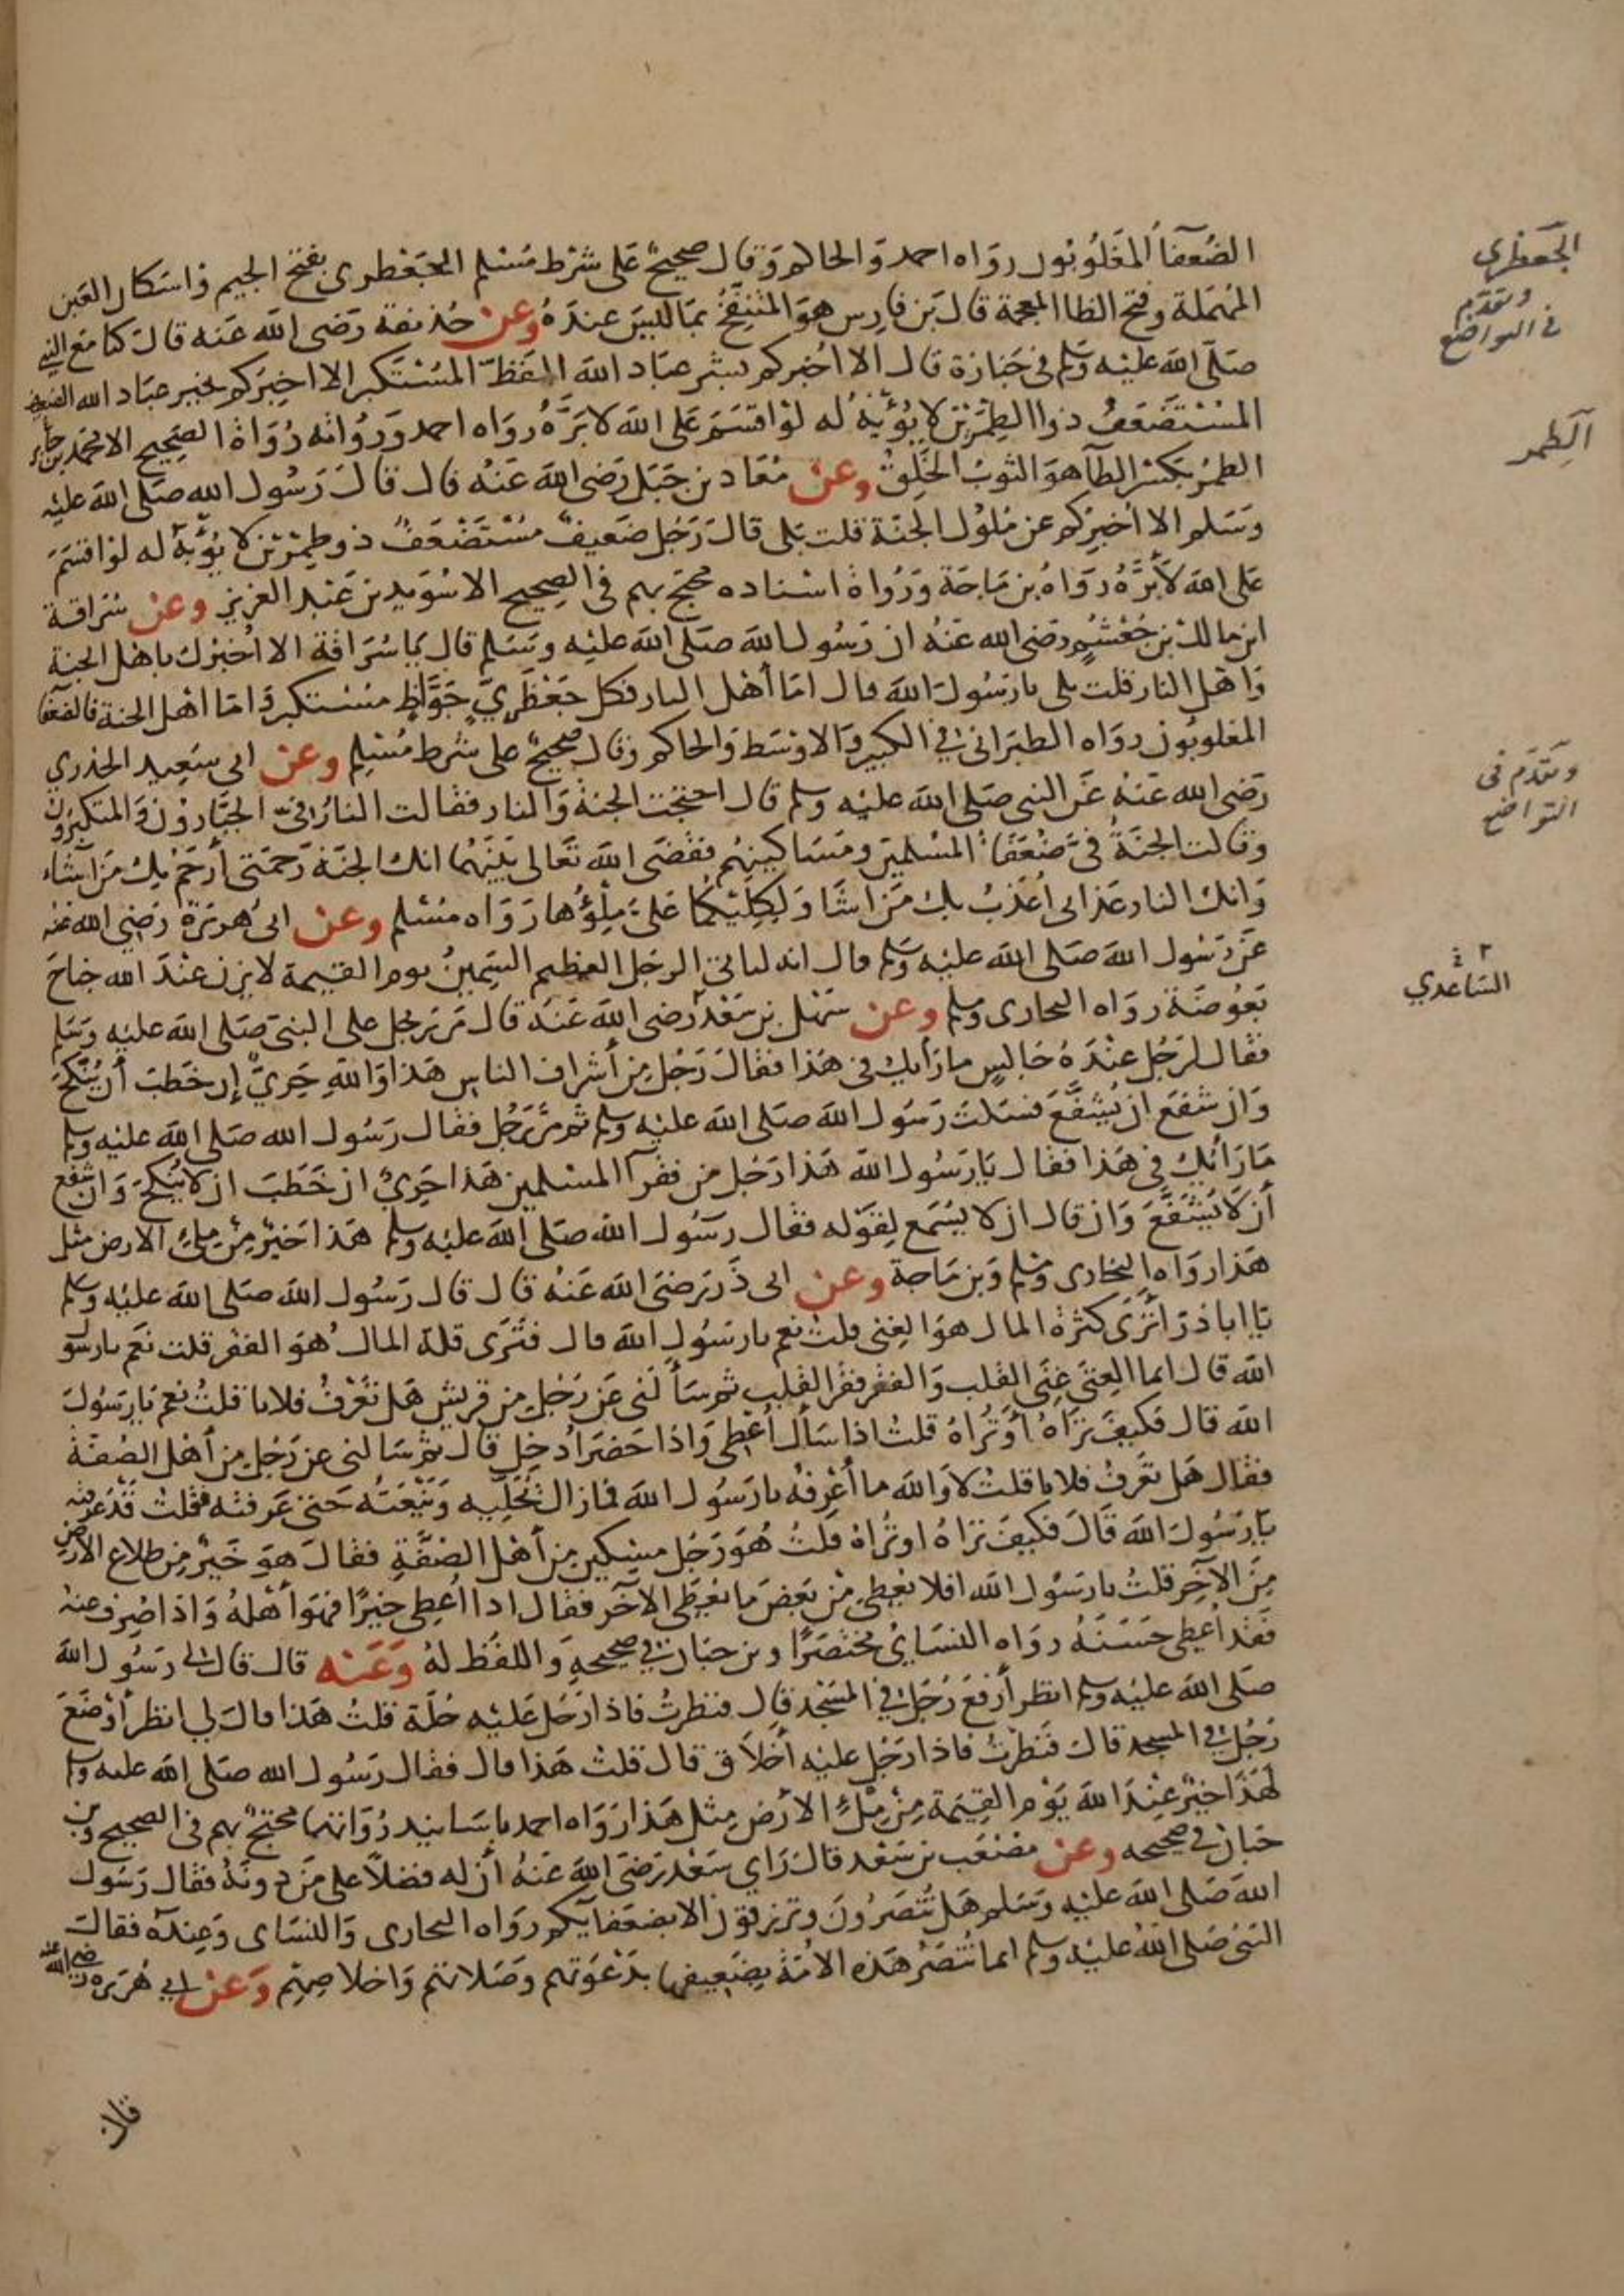 الضُعَفَاُ المَغلُوبُون روَاه احمد وَالحاكم وَقال صحيحٌ عَلى شرْط مُسْلم الجَعْظرى بفتح الجيم وَاسكان العَين
المُهمَلة وفتح الظا المعجمة قال بَن فارِس هوَ المُنتفِخُ بمَا ليسَ عندَهُ وعن حُذيفة رَضى الله عَنه قال كنا مَع النبي
صَلى الله عَليْه وَسَلم فى جَنازة قال الا اخْبركم بشر عبَاد الله الفَظّ المُسْتكبر الا اخبرَكم بخير عبَاد الله الضعيف
المُسْتضعَفُ ذوا الطِمْرَيْن لا يُؤبَهُ له لوْ اقسَمَ عَلى الله لابَرَّهُ روَاه احمد وَروَاته رُوَاة الصَحيح الا محمد بن جابر
الطمْرُ بكسْر الطآ هوَ الثوبُ الخَلِقُ وعن مُعَاد بن جَبَل رَضى الله عَنْهُ قال قال رَسُول الله صَلى الله عليْه
وَسَلم الا اخبِرُكم عن مُلوْك الجَنة قلت بَلى قالَ رَجُل ضَعيفٌ مُسْتَضْعَفٌ ذو طِمْرَيْن لا يُؤْبَهُ له لوْ اقسَمَ
عَلى الله لأبَرَّهُ رَوَاهُ بن مَاجَة وَرُوَاة اسْناده محتج بهم فى الصحيح الا سُوَيد بن عَبْد العَزيز وعن سُرَاقة
ابن مالك بن جُعْشُمٍ رضَى الله عَنْهُ ان رَسُول الله صَلى الله عليْه وسَلم قال يَا سُرَاقة الا اُخبرُك باهْل الجنة
وَاهْل النار قلت بلى يا رَسُولَ الله قال امّا أهْل النار فكل جَعْظَرِيٍّ جَوَّاظٍ مسْتكبر وَامّا اهْل الجنة فالضعَفا
المغلوبُون روَاه الطبَرَانى في الكبير وَالاوْسَط وَالحاكم وقال صحيحٌ على شرط مُسْلِم وعن ابى سَعِيد الخدري
رَضى الله عَنْهُ عَن النبى صَلى الله عَليْه وسلم قال احتجت الجنة وَالنار فقالت النارُ فيّ الجبّارُوْن وَالمتكبرُون
وقالت الجَنةُ فيَّ ضُعَفَاُ المسْلمين ومَسَاكينهُم فقضَى الله تَعَالى بَيْنَهُما انك الجَنة رَحمَتى أَرْحَمُ بِك مَن اَشَاءُ
وَانك النار عَذابى اُعَذبُ بك مَن اشَا وَلِكِلَيْكُمَا عَليَّ مِلْؤُها رَوَاه مسْلم وعن ابى هُرَيرَة رَضِي الله عَنْه
عَن رَسُول الله صَلى الله عليْه وَسَلم قال انه لياتى الرجَل العَظيم السَمِينُ يوم القيمة لا يزن عنْدَ الله جناحَ
بَعُوضَة روَاه البخارى ومسلم وعن سَهْل بن سَعْد رضى الله عَنهُ قال مَرّ رَجُل على النبىّ صَلى الله عليْه وَسَلم
فقال لرَجُل عنْدَهُ جَالسٍ ما رَأيك فى هَذا فقالَ رَجُل مِن أَشراف الناس هَذا وَاللهِ حَرِيٌّ إن خَطَبَ أَن يُنكَحَ
وَان شفَعَ ان يُشفَّعَ فسَكتَ رَسُول الله صَلى الله عليْه وسلم ثم مَرّ رَجُل فقال رَسُول الله صَلى الله عليْه وسلم
مَا رَأيُك فِى هَذا فقال يَا رَسُول الله هَذا رَجُل من فقرآ المسْلمين هَذا حَرِيٌّ ان خَطَبَ ان لا يُنكحَ وَان شفَع
أن لَا يُشفّعَ وَان قال ان لا يُسْمَع لِقوْله فقال رسَول الله صَلى الله عليْه وَسلم هَذا خَيْرٌ مِنْ مِلءِ الارض مثل
هَذا روَاه البخارى ومسلم وَبن مَاجة وعن ابى ذَرّ رَضى الله عَنْه قال قال رَسُول الله صَلى الله عليْه وَسَلم
يَا ابا ذرّ اتَرَى كثرة المال هوَ الغِنى قلتُ نعم يا رَسُول الله قال فتَرَى قلة المال هُوَ الفقر قلت نَعَم يا رسُول
الله قال انما الغِنَى غِنَى القلب وَالفقر فقر القلب ثم سَأَلنى عَن رَجُل من قريش هَل تعْرفُ فلانا قلتُ نعم يَا رَسُولَ
الله قال فكيفَ تَرَاهُ أوْ تُرَاهُ قلتُ اذا سَأَل أُعْطِى وَاذا حَضرَ اُدخِل قال ثم سَالنى عن رَجُل من أَهْل الصُفة
فقال هَل تعْرفُ فلانا قلتُ لا وَالله ما أَعْرِفهُ يا رَسُول الله فمَا زال يُحَلِّيه وَيَنْعَتُه حَتى عَرفته فقلت قدْ عَرفته
يَا رَسُولَ الله قالَ فكيفَ تَرَاهُ او تُراهُ قلتُ هُوَ رَجُل مسْكين مِن أَهْل الصُفّةِ فقالَ هَوَ خَيْرٌ مِن طلاع الأرض
مِنَ الآخَر قلتُ يا رسُول الله افلا يُعْطى مِنْ بَعْض مَا يُعْطَى الآخَر فقال اذا اُعطى خيرًا فهوَ أَهْلهُ وَاذا صُرِف عنهُ
فقد اُعْطى حَسَنَهُ روَاه النسَائىُّ مختصَرًا وبن حبان فى صَحيحهِ وَاللفْظ لهُ وَعَنه قال قال لى رَسُول الله
صَلى الله عَليْه وسلم انظر أَرفعَ رَجُل في المسْجد قال فنظرتُ فاذا رَجُل عَليْه حُلَّة قلتُ هَذا قال لى انظر أوْضَعَ
رَجُل في المسجد قال فَنظرْتُ فاذا رَجُل عليْه أَخلَاق قال قلتُ هَذا قال فقال رَسُول الله صَلى الله عليه وسلم
لَهَذَا خيْرٌ عنْدَ الله يَوْم القِيمَة مِنْ مِلءِ الأرْض مِثل هَذا رَوَاه احمد باسَانيد رُوَاتها محتجٌ بهم فى الصحيح وبن
حَبان في صحيحه وعن مصْعَب بن سَعْد قال رَاى سَعْد رَضى الله عَنْهُ أن له فضلاً على مَن دونهُ فقال رَسُول
الله صَلى الله عليْه وَسَلم هَل تُنصَرُونَ وترزقوْن الا بضعَفايكم روَاه البخارى وَالنسَاى وَعِندَهُ فقال
النبى صَلى الله عليْه وسلم انما تُنصَرُ هَذه الامَّة بِضَعِيفها بدَعْوَتهم وصَلاتهم وَاخلاصِهم وَعن ابى هُرَيرَة رضى الله عنه
قال ان
الجَعظرى
وتقدّم
فى التواضع
الطِمر
وتقدّم فى
التواضع
السَّاعدي